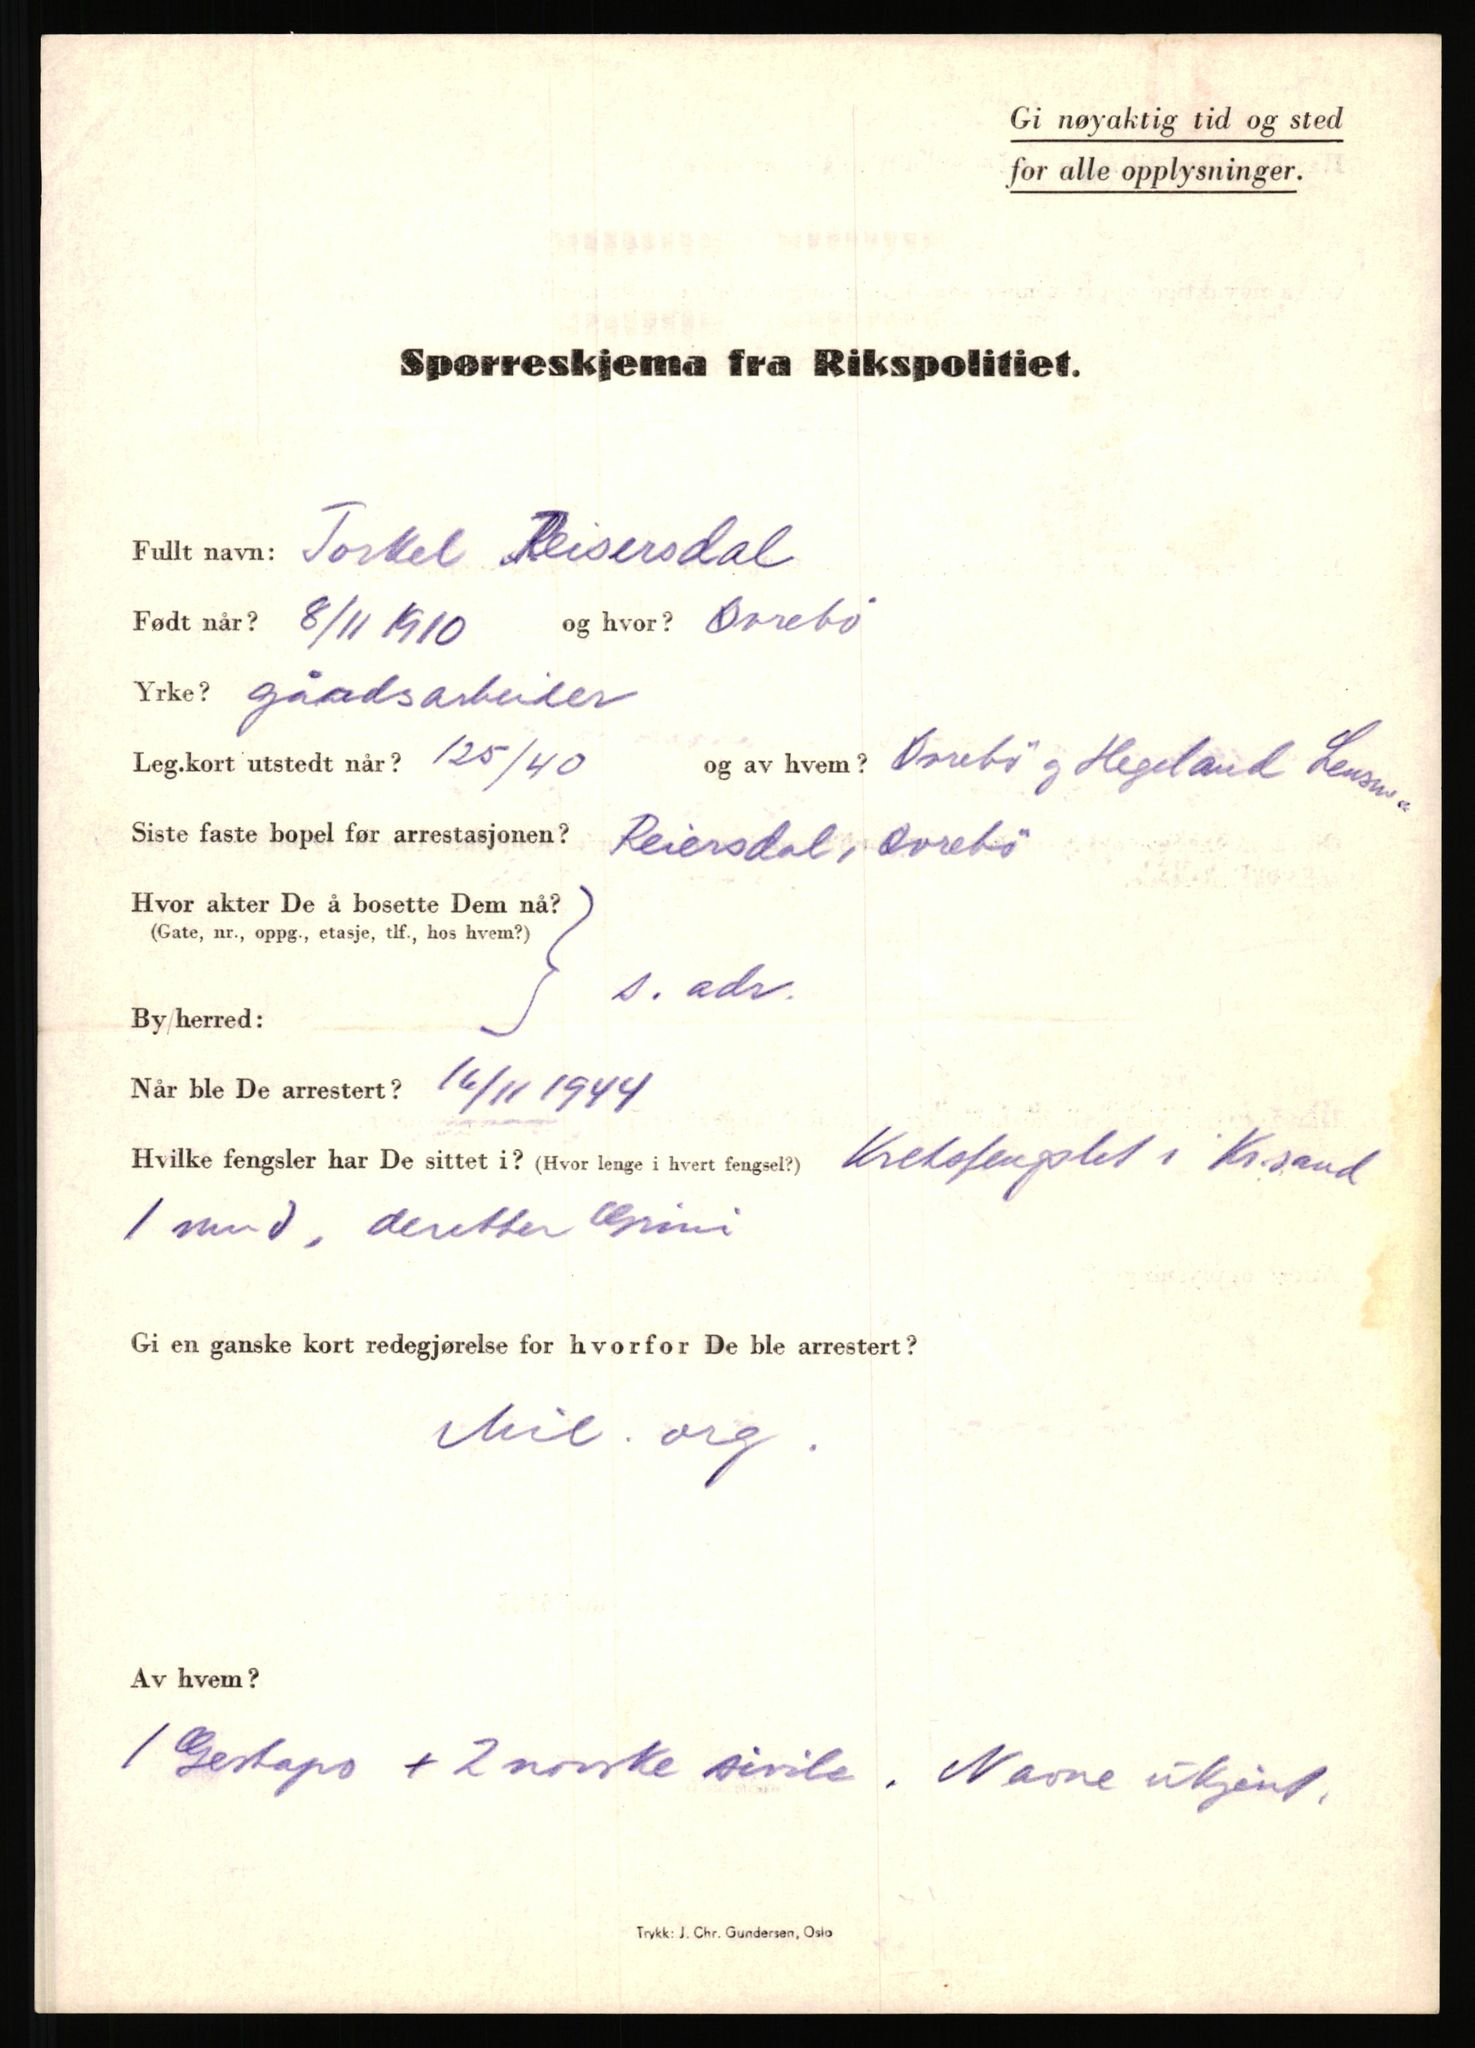 Gi nøyaktig tid og sted
for alle opplysninger.
Spørreskjema fra Rikspolitiet.
Fullt navn: Torkel Reiersdal
Født når? 8/11 1910 og hvor? Øvrebö
Yrke? gårdsarbeider
Leg.kort utstedt når? 125/40 og av hvem? Øvrebö og Hegeland Lensm.
Siste faste bopel før arrestasjonen? Reiersdal, Øvrebö
Hvor akter De å bosette Dem nå?
(Gate, nr., oppg., etasje, tlf., hos hvem?)
s. adr.
By/herred:
Når ble De arrestert? 16/11 1944
Hvilke fengsler har De sittet i? (Hvor lenge i hvert fengsel?) Kretsfengslet i Kr.sand
1 mnd, deretter Grini
Gi en ganske kort redegjørelse for hvorfor De ble arrestert?
Mil. org.
Av hvem?
1 Gestapo + 2 norske sivile. Navne ukjent.
Trykk: J. Chr. Gundersen, Oslo